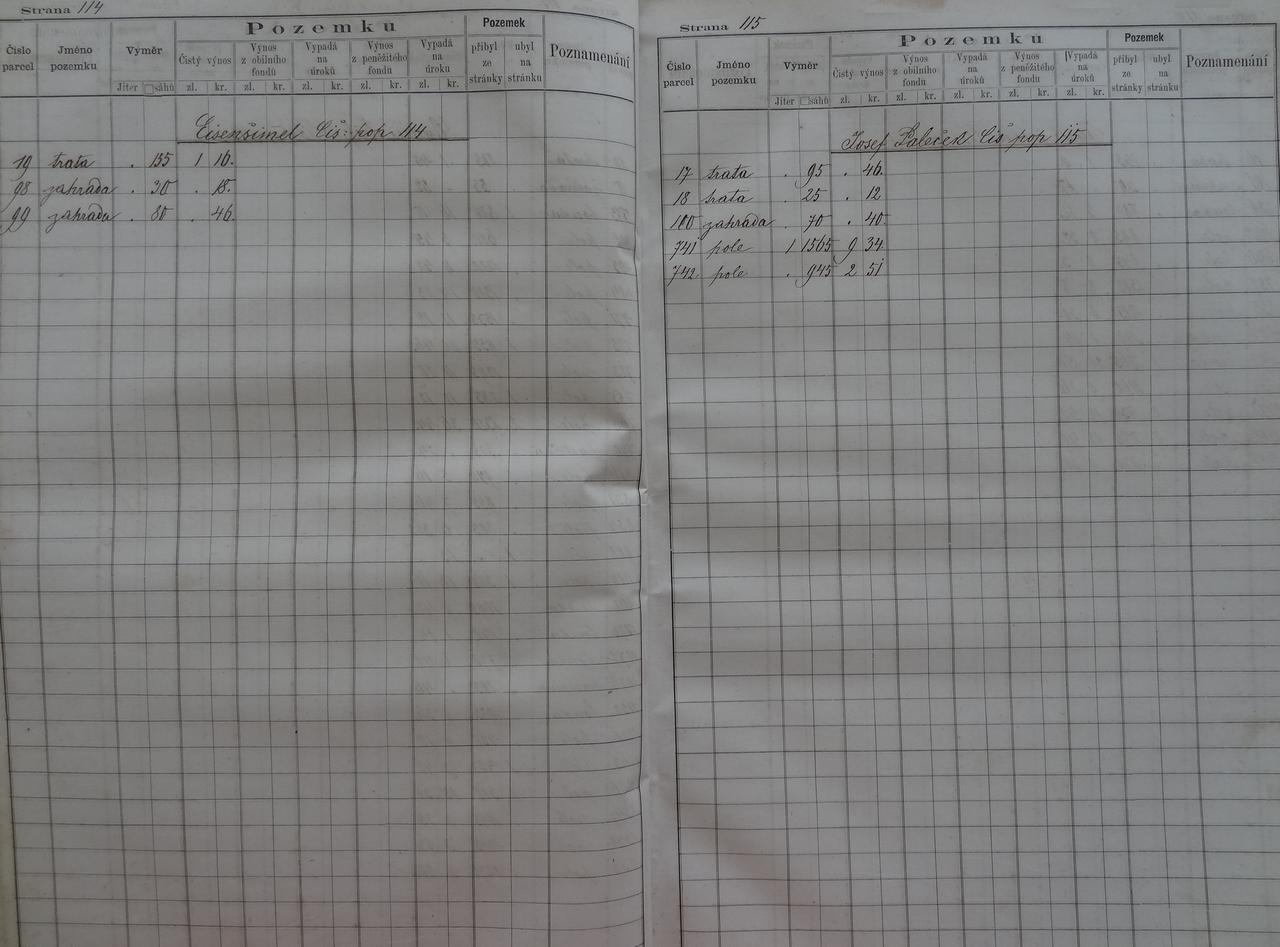 Strana 114
Pozemku
Pozemek
Číslo parcel
Jméno pozemku
Výměr
Čistý výnos
Výnos z obilního fondu
Vypadá na úroků
Výnos z peněžitého fondu
Vypadá na úroku
přibyl ze stránky
ubyl na stránku
Poznamenání
Jiter □sáhů zl. kr. zl. kr. zl. kr. zl. kr. zl. kr.
Eisenšimel Čis: pop 114
19 trata . 155 1 16.
98 zahrada . 30 . 18.
99 zahrada . 80 . 46.
Strana 115
Pozemku
Pozemek
Číslo parcel
Jméno pozemku
Výměr
Čistý výnos
Výnos z obilního fondu
Vypadá na úroků
Výnos z peněžitého fondu
Vypadá na úroků
přibyl ze stránky
ubyl na stránku
Poznamenání
Jiter □sáhů zl. kr. zl. kr. zl. kr. zl. kr. zl. kr.
Josef Paleček Čis pop 115
17 trata . 95 . 46.
18 trata . 25 . 12
100 zahrada . 70 . 40.
741 pole 1 1565 9 34.
742 pole . 945 2 51